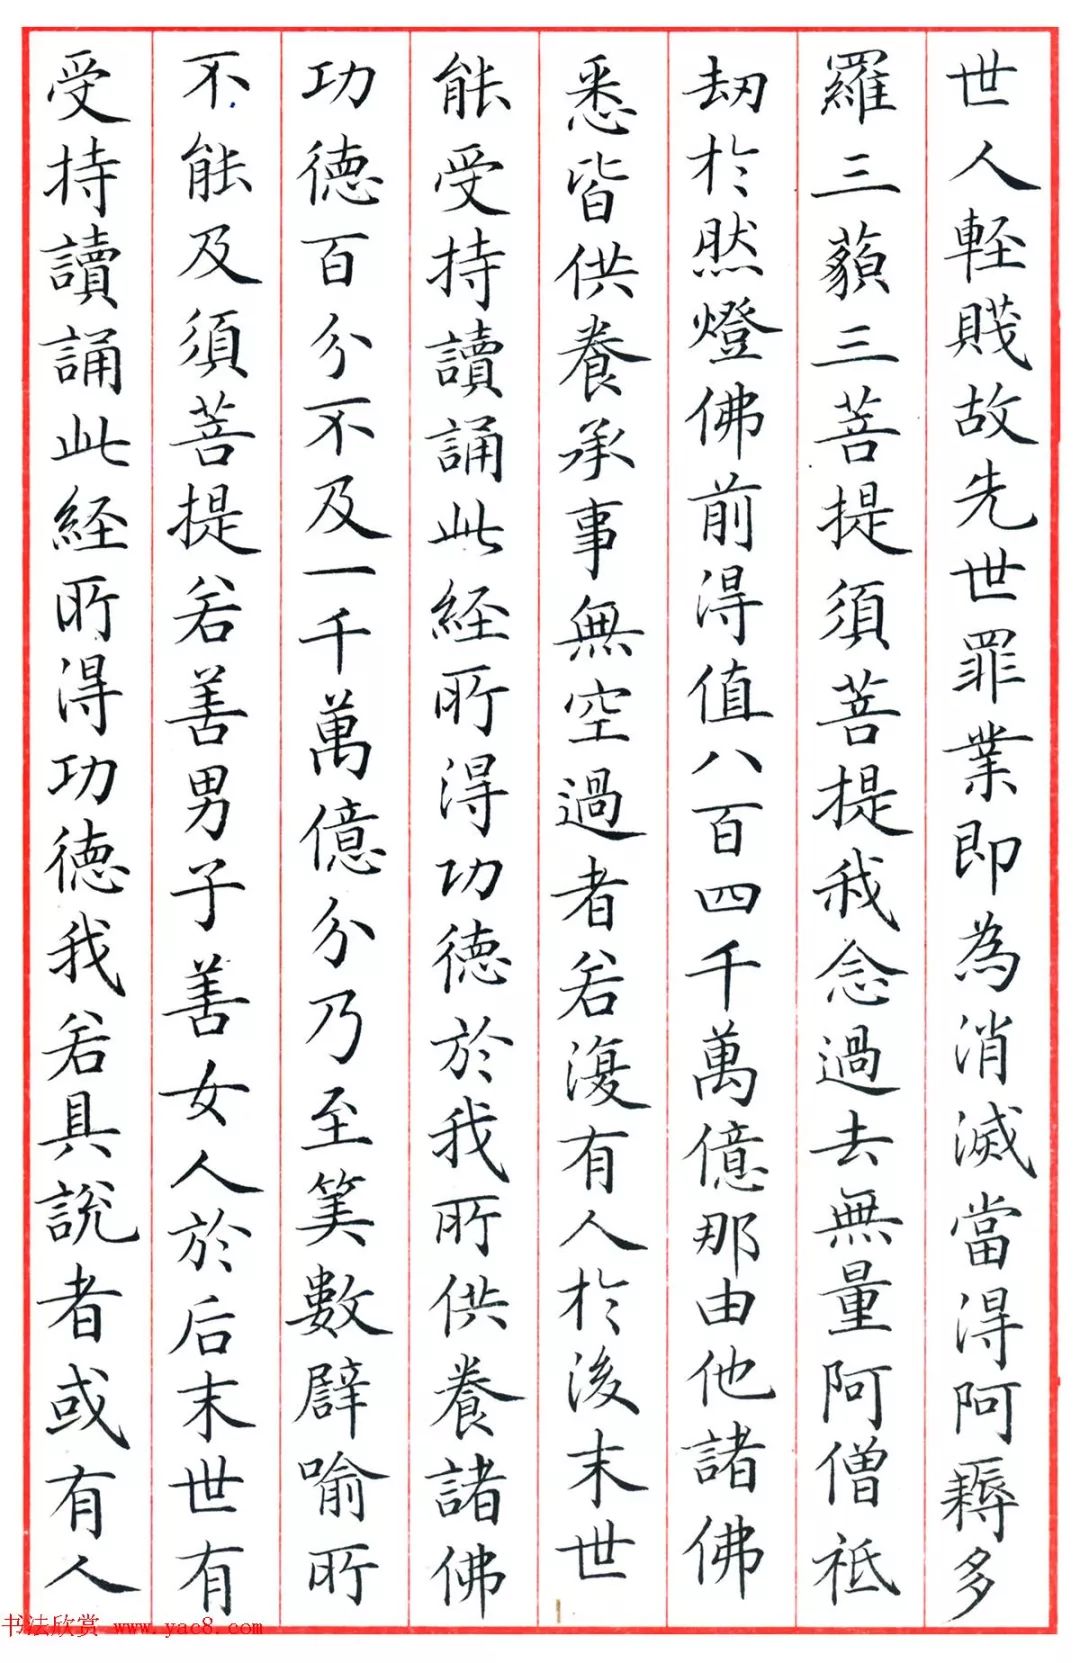 世人輕賤故先世罪業即為消滅當得阿耨多
羅三藐三菩提須菩提我念過去無量阿僧祇
劫於然燈佛前得值八百四千萬億那由他諸佛
悉皆供養承事無空過者若復有人於後末世
能受持讀誦此経所得功德於我所供養諸佛
功德百分不及一千萬億分乃至筭數譬喻所
不能及須菩提若善男子善女人於后末世有
受持讀誦此経所得功德我若具說者或有人
书法欣赏 www.yac8.com